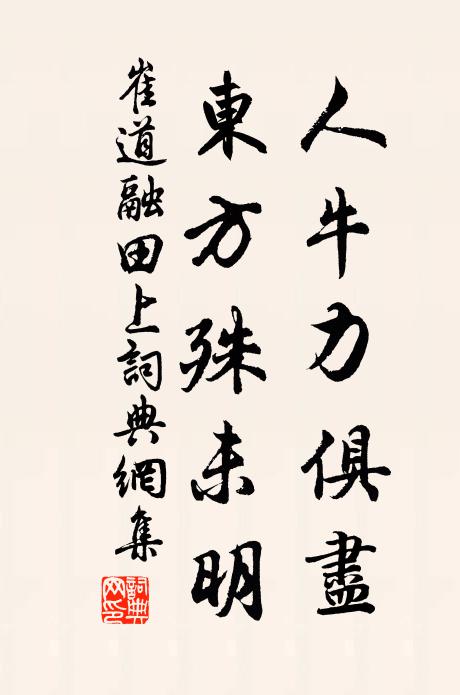 人牛力俱盡
東方殊未明
崔道融田上詞典網集
詞典網印